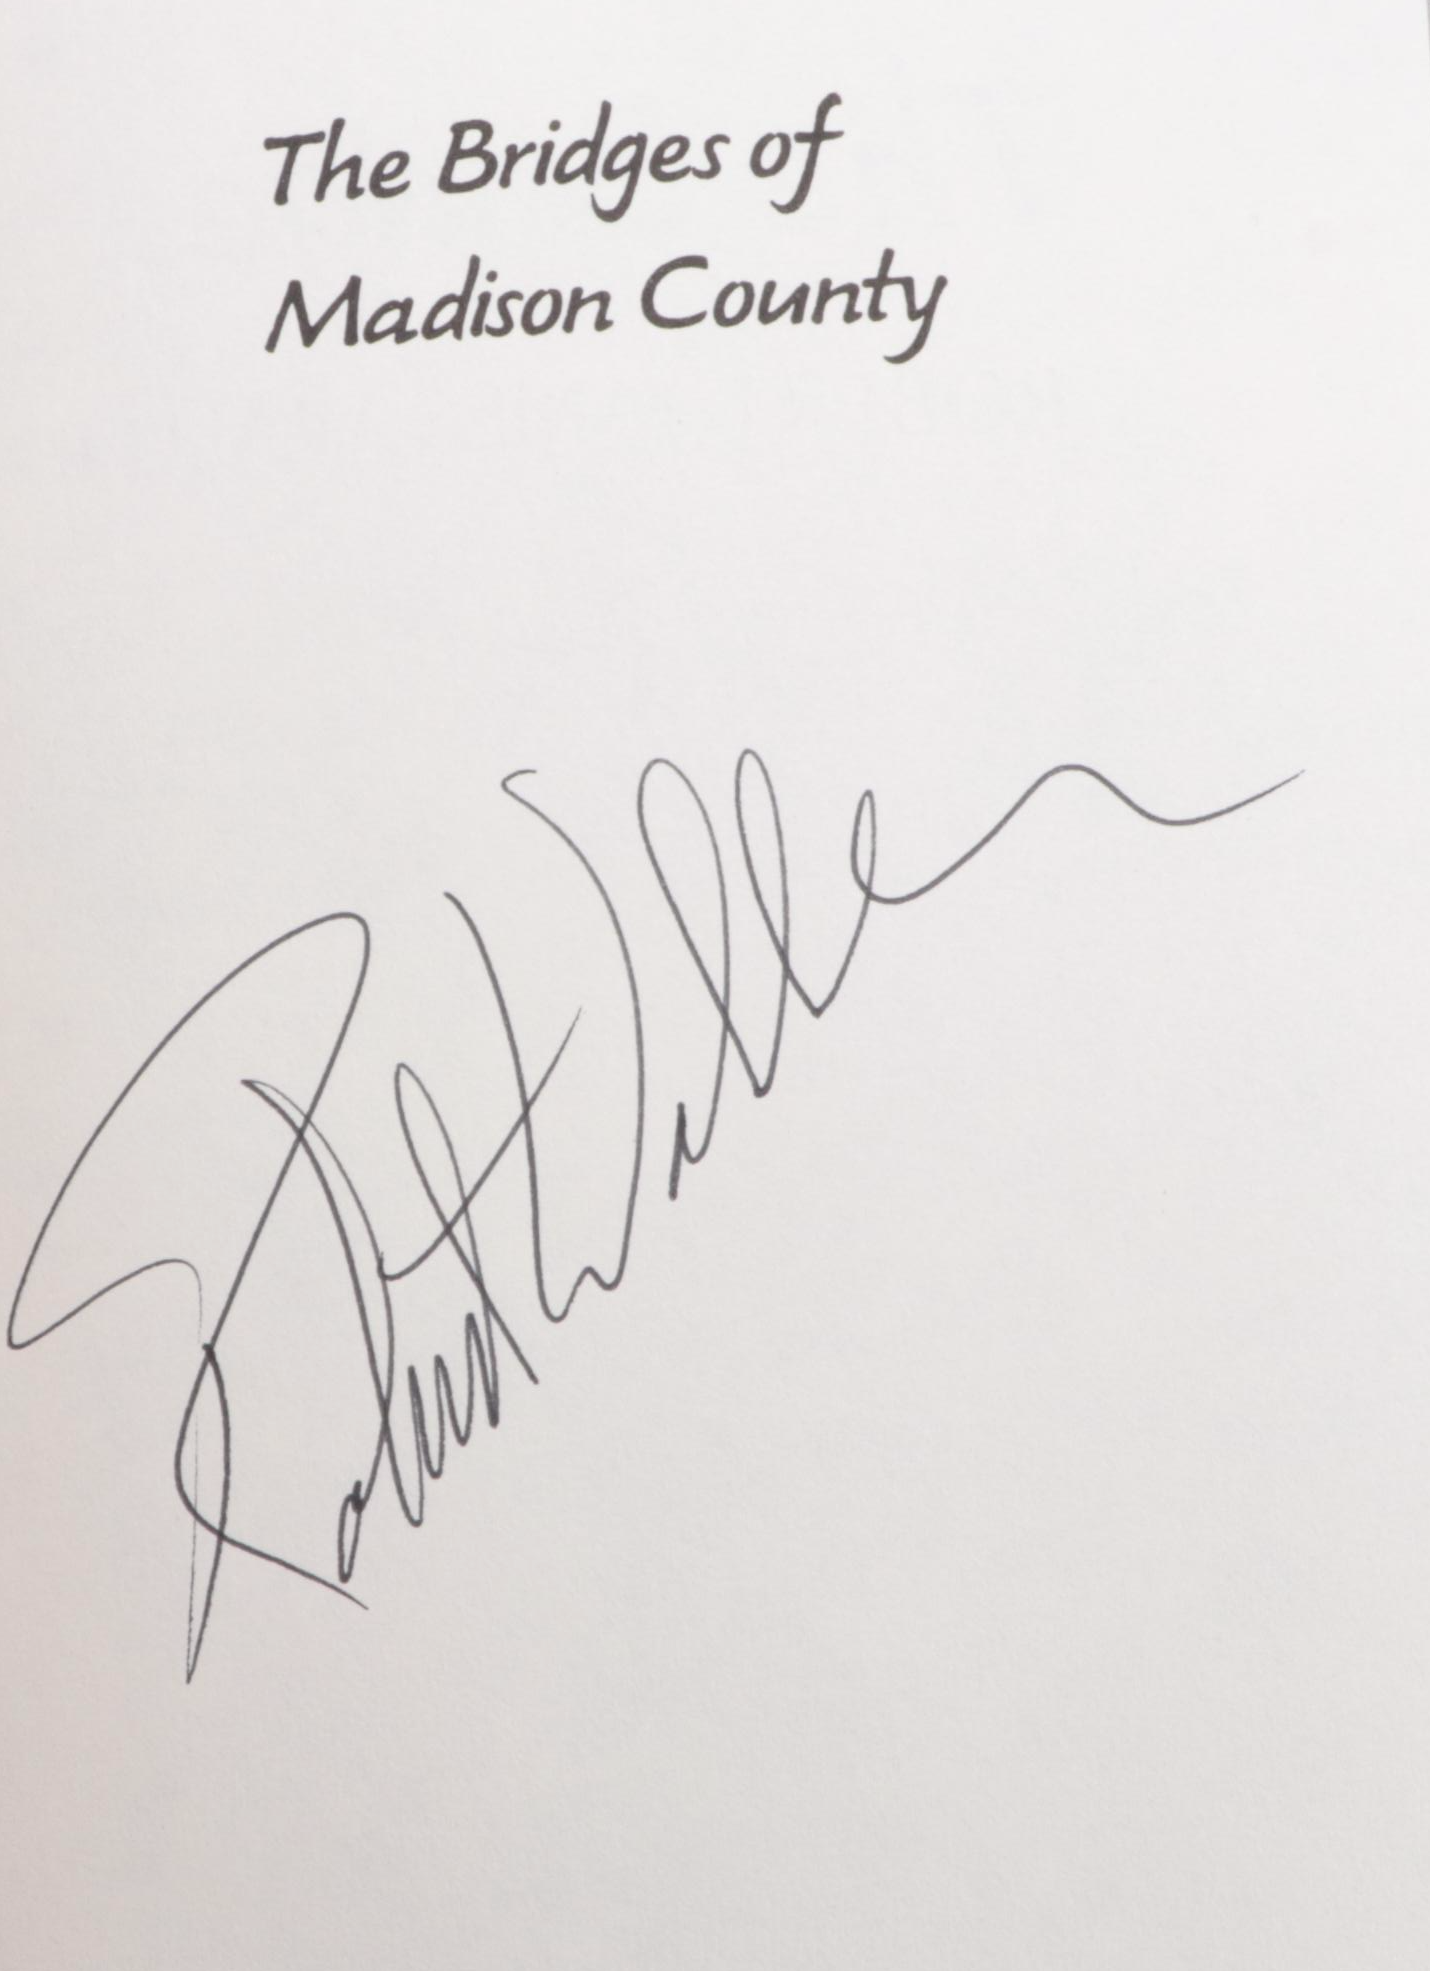 The Bridges of
Madison County
Robert Waller